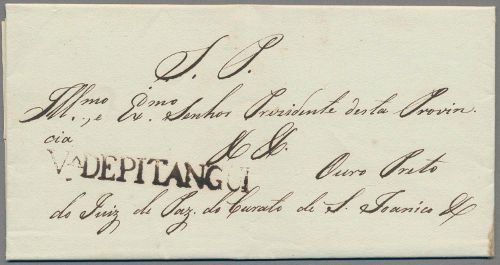 S. P.
Ill.mo, e Ex.mo Senhor Prezidente desta Provin.
cia
&. &.
Va DEPITANGUI
Ouro Preto
do Juiz de Paz do Curato de S. Joanico &